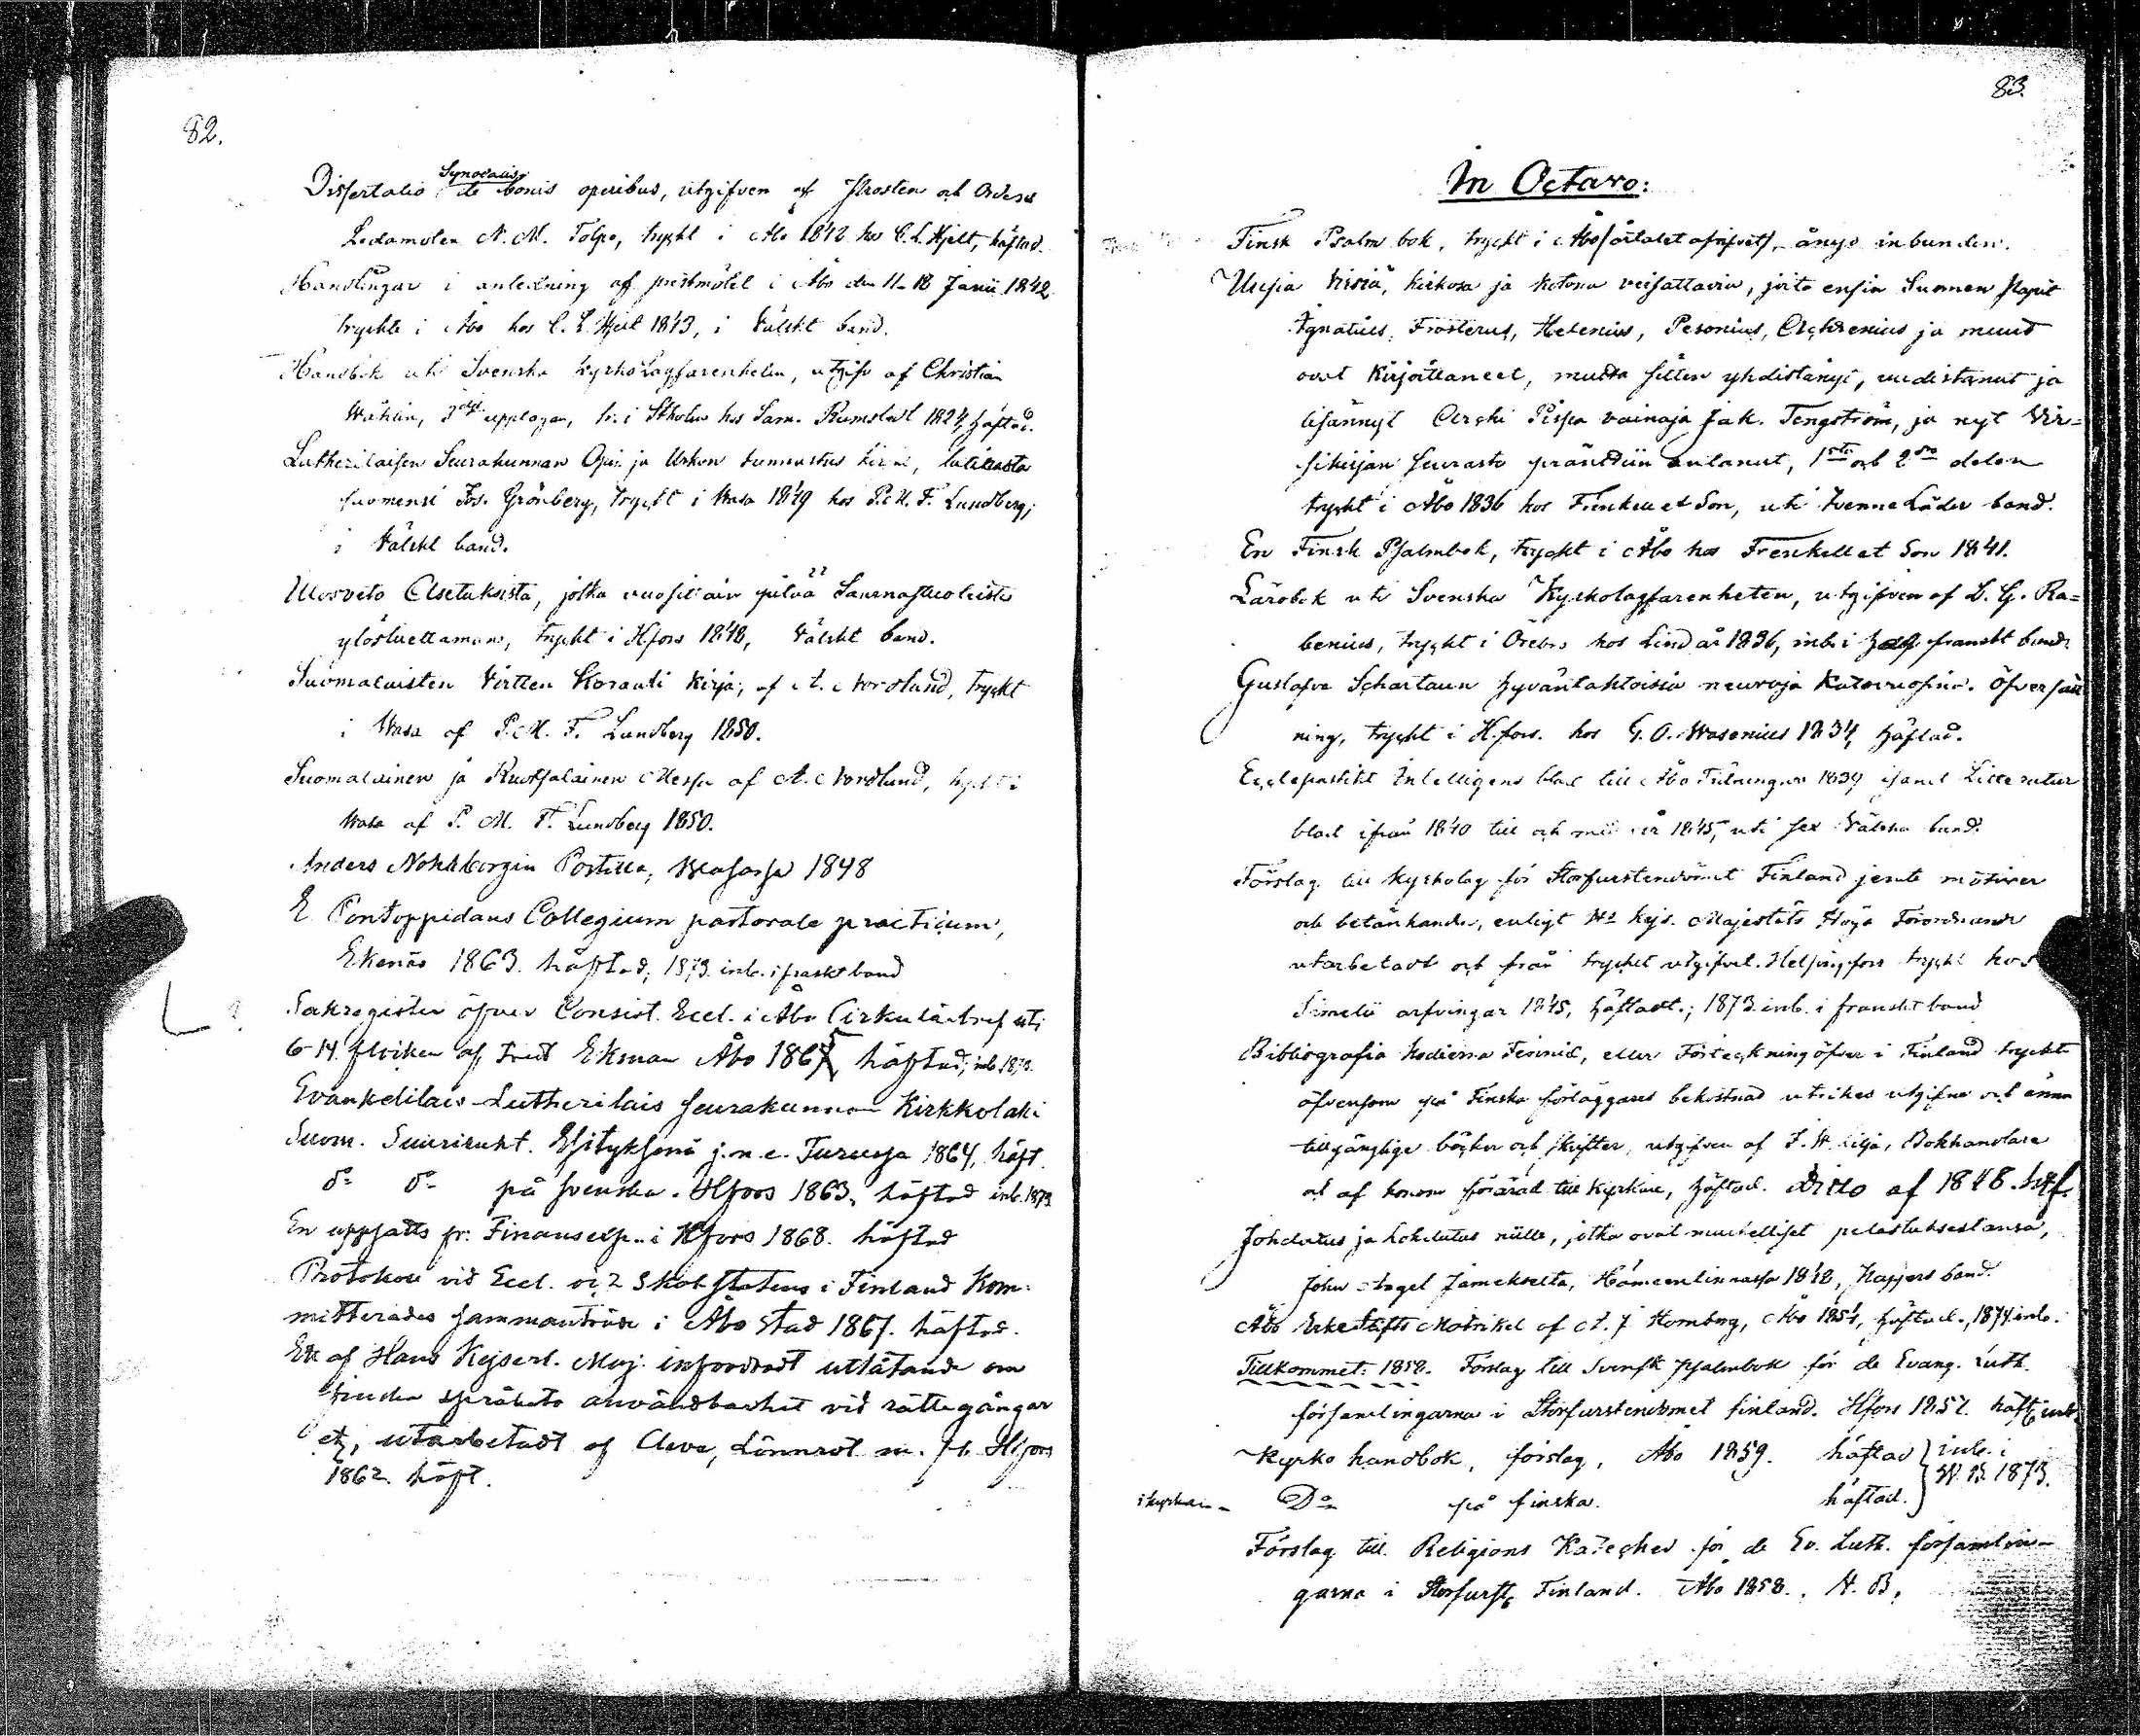 82.
Dissertatio Synodalis de bonis operibus, utgifven af Prosten och Ordens
Ledamoten N. M. Tolpo, tryckt i Åbo 1842 hos C. L. Hjelt, häftad.
Handlingar i anledning af prestmötet i Åbo den 11-18 Junii 1842
tryckte i Åbo hos C. L. Hjelt 1843, i Välskt band.
Handbok uti Svenska KyrkoLagfarenheten, utgifv af Christian
Wåhlin, upplagan, tr. i Stholm hos Sam. Rumstedt 1824, häftad.
Lutherilaisen Seurakunnan Opin ja Uskon tunnustus kirja, latinasta
suomensi Jos. Grönberg, tryckt i Wasa 1849 hos P. M. F. Lundberg,
i Välskt band.
Ulosveto Asetuksista, jotka vuosittain pitää Saarnastuoleista
ylösluettaman, tryckt i Hfors 1848, Välskt band.
Suomalaisten Virtten Koraali Kirja, af A. Nordlund, tryckt
i Wasa af P. M. F. Lundberg 1850.
Suomalainen ja Ruotsalainen Messu af A. Nordlund, tryckt i
Wasa af P. M. F. Lundberg 1850.
Anders Nohrborgin Postilla, Wasassa 1848
E Pontoppidans Collegium pastorale practicum,
Ekenäs 1863. häftad; 1873. inb. i franskt band
Sakregister öfver Consist. Eccl. i Åbo Cirkulärbref uti
6-14 flocken af Fred Ekman Åbo 186 häftad; inb. 1873.
Evankelilais-Lutherilais seurakunnan Kirkkolaki
Suom. Suuriruht. Esityksenä j.n.e. Turussa 1864, häft.
do do på svenska. Hfors 1863, häftad inb. 1873
En uppsatts fr. Finansexp. i Hfors 1868. häftad
Protokoll vid Eccl. och Skol Statens i Finland Kom-
mitterades sammanträde i Åbo stad 1867. häftad.
Ett af Hans Kejserl. Maj: infordradt utlåtande om
finska språkets användbarhet vid rättegångar
etc, utarbetadt af Cleve, Lönnrot m. fl. Hfors
1862. häft.
83.
In Octavo:
Finsk Psalmbok, tryckt i Åbo (årtalet afrifvit), ånyo inbunden.
Uusia Virsiä, kirkosa ja kotona veisattavia, joita ensin Suomen Papit
Ignatius, Frosterus, Helenius, Pesonius, Achrenius ja muut
ovat Kirjoittaneet, mutta sitten yhdistänyt, uudistanut ja
lisännyt Arcki Pispa vainaja Jak. Tengström, ja nyt Vir-
sikirjan seurasta präntiin antanut, 1sta och 2dra delen
tryckt i Åbo 1836 hos Frenckell et Son, uti tvenne Läder band.
En Finsk Psalmbok, tryckt i Åbo hos Frenckell et Son 1841.
Lärobok uti Svenska Kyrkolagfarenheten, utgifven af L. G. Ra-
benius, tryckt i Örebro hos Lind år 1836, inb. i half franskt band.
Gustafva Schartaun hyväntahtoisia neuvoja Katuvaisina. Öfversätt
ning, tryckt i H.fors. hos G. O. Wasenius 1834, häftad.
Ecclesiastikt Intelligens blad till Åbo Tidningar 1839 isamt Litteratur
blad ifrån 1840 till och med år 1845, uti sex Välska band.
Förslag till kyrkolag för Storfurstendömet Finland jemte motiver
och betänkande, enligt Hs Kejs. Majestäts Höga Förordnande
utarbetadt och från trycket utgifvet. Helsingfors tryckt hos
Simelii arfvingar 1845, häftadt.; 1873 inb. i franskt band
Bibliografia hodierna Fennica, eller Förteckning öfver i Finland tryckte
äfvensom på Finska förläggares bekostnad utrikes utgifne och ännu
tillgänglige böcker och skrifter, utgifven af J. W. Lilja, Bokhandlare
och af honom förärad till Kyrkan, häftad. Ditto af 1848.
Johdatus ja hohdutus niille, jotka ovat murhelliset pelastuksestansa,
John Angel Jamekselta, Hämeenlinnassa 1848, Pappers band.
Åbo Erkestifts Matrikel af A. J. Hornborg, Åbo 1851, häftad., 1874 inb.
Tillkommet: 1858. Förslag till Svensk psalmbok för de Evang. Luth.
församlingarna i Storfurstendömet Finland. Hfors 1857. häft, inb.
Kyrko handbok, förslag, Åbo 1859. häftad } inb. i
i kyrkan - Do på finska. häftad. } W. B. 1873.
Förslag till Religions Kateches för de Ev. Luth. församlin-
garna i Storfurst. Finland. Åbo 1858. H. B.